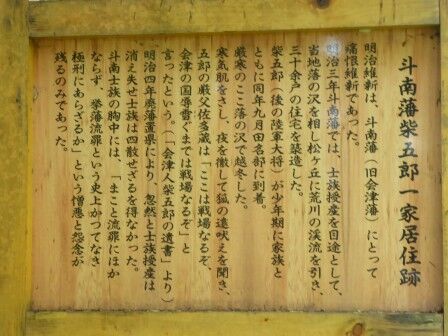 斗南藩柴五郎一家居住跡
明治維新は、斗南藩（旧会津藩）にとって
痛恨維新であった。
明治三年斗南藩では、士族授産を目途として、
当地落の沢を相し松ヶ丘に荒川の渓流を引き
三十余戸の住宅を築造した。
柴五郎（後の陸軍大将）が少年期に家族と
ともに同年九月田名部に到着。
厳寒のここ落の沢で越冬した。
寒気肌をさし、夜を徹して狐の遠吠えを聞き、
五郎の厳父佐多蔵は「ここは戦場なるぞ、
会津の国辱雪ぐまでは戦場なるぞ」と
言ったという。（「会津人柴五郎の遺書」より）
明治四年廃藩置県により、忽然と士族授産は
消え失せ士族は四散せざるを得なかった。
斗南士族の胸中には、「まこと流罪にほか
ならず、挙藩流罪という史上かつてなき
極刑にあらざるか」という憎悪と怨念が
残るのみであった。